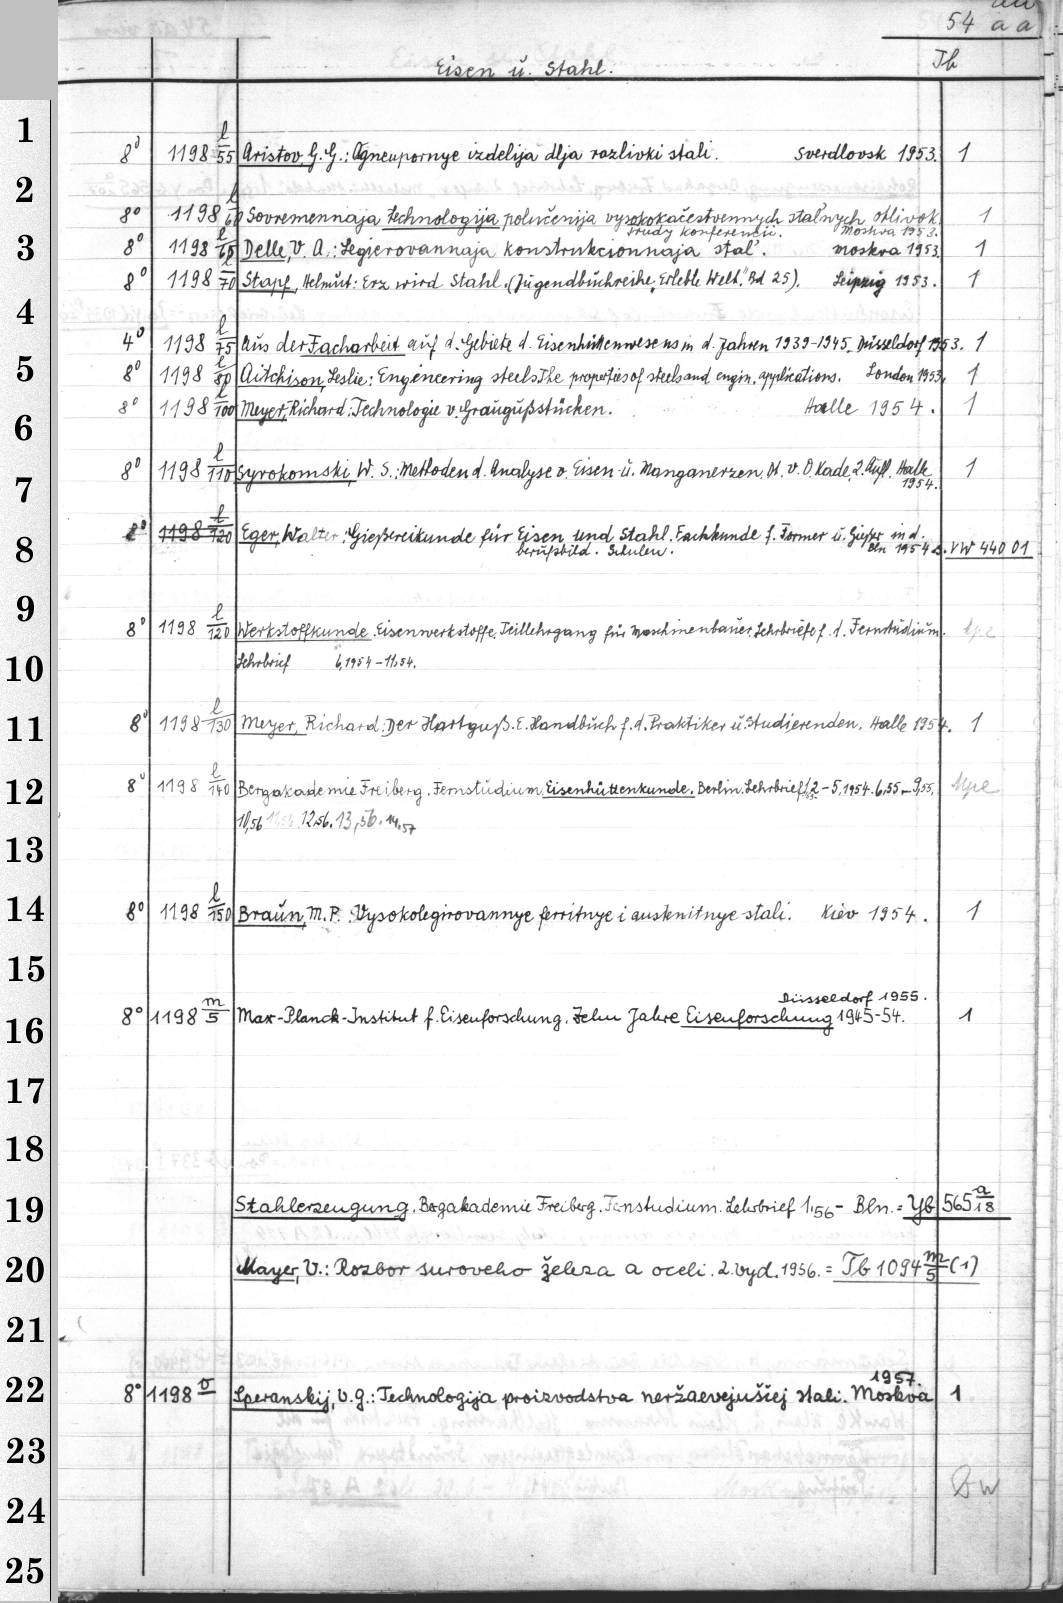 54 aa
Eisen u. Stahl. Tb
1
8° 1198 l/55 Aristov, G. G.: Ogneupornye izdelija dlja razlivki stali. Sverdlovsk 1953. 1
2
8° 1198 l/60 Sovremennaja technologija polučenija vysokokačestvennych stal'nych otlivok 1
Trudy konferencii. Moskva 1953.
3
8° 1198 l/65 Delle, V. A.: Legierovannaja konstrukcionnaja stal'. Moskva 1953. 1
8° 1198 l/70 Stapf, Helmut: Erz wird Stahl. (Jugendbuchreihe „Erlebte Welt." Bd 25). Leipzig 1953. 1
4
4° 1198 l/75 Aus der Facharbeit auf d. Gebiete d. Eisenhüttenwesens in d. Jahren 1939-1945. Düsseldorf 1953. 1
5
8° 1198 l/80 Aitchison, Leslie: Engineering steels. The properties of steels and engin. applications. London 1953. 1
8° 1198 l/100 Meyer, Richard: Technologie v. Graugußstücken. Halle 1954. 1
6
8° 1198 l/110 Syrokomski, W. S.: Methoden d. Analyse v. Eisen- u. Manganerzen. Dt. v. O Kade. 2. Aufl. Halle 1
1954.
7
8° 1198 l/120 Eger, Walter: Gießereikunde für Eisen und Stahl. Fachkunde f. Former u. Gießer in d.
8
berufsbild. Schulen. Bln 1954 VW 440 01
9
8° 1198 l/120 Werkstoffkunde. Eisenwerkstoffe. Teillehrgang für Maschinenbauer. Lehrbriefe f. d. Fernstudium.
10
Lehrbrief 6,1954-11,54.
11
8° 1198 l/130 Meyer, Richard: Der Hartguß. E. Handbuch f. d. Praktiker u. Studierenden. Halle 1954. 1
12
8° 1198 l/140 Bergakademie Freiberg. Fernstudium Eisenhüttenkunde. Berlin. Lehrbrief 1,2-5,1954. 6,55-9,55.
10,56 11,56 12,56. 13,56. 14,57
13
14
8° 1198 l/150 Braun, M. P.: Vysokolegirovannye ferritnye i austenitnye stali. Kiev 1954. 1
15
Düsseldorf 1955.
16
8° 1198 m/5 Max-Planck-Institut f. Eisenforschung. Zehn Jahre Eisenforschung 1945-54. 1
17
18
19
Stahlerzeugung. Bergakademie Freiberg. Fernstudium. Lehrbrief 1,56- Bln. = Yb 565 a/18
20
Mayer, V.: Rozbor suroveho železa a oceli. 2. vyd. 1956. = Tb 1094 m/5 (1)
21
1957.
22
8° 1198 v Speranskij, V. G.: Technologija proizvodstva neržavejuščej stali. Moskva 1
23
24
25